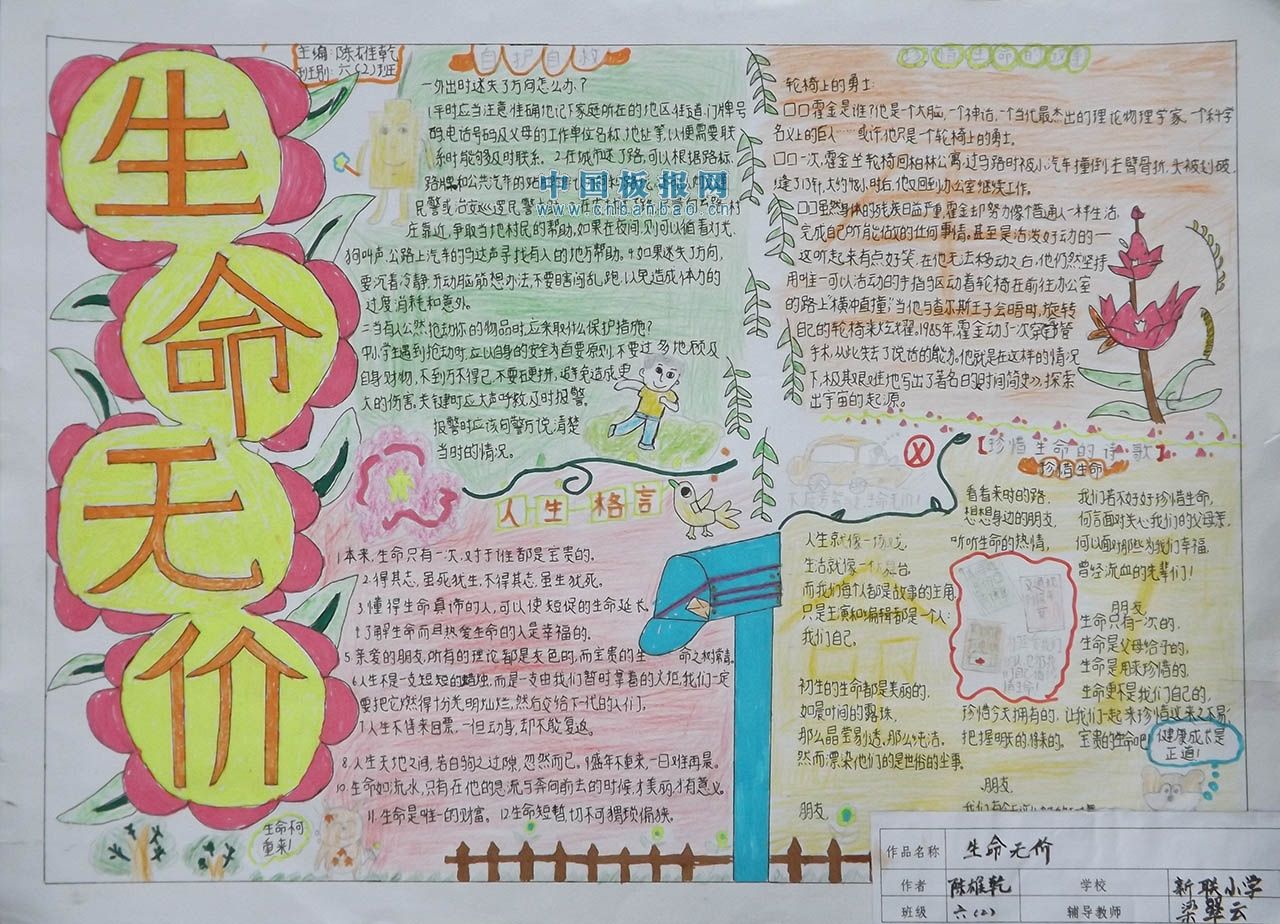 生命无价
主编:陈雄乾
班别:六(2)班
自护自救
一外出时迷失了方向怎么办?
1平时应当注意准确地记下家庭所在的地区街道门牌号
码电话号码及父母的工作单位名称、地址等,以便需要联
系时能够及时联系。2.在城市迷了路,可以根据路标、
路牌和公共汽车的站
民警或治安巡逻民警
庄靠近,争取当地村民的帮助。如果在夜间,则可以循着灯光、
狗叫声、公路上汽车的马达声寻找有人的地方帮助。4如果迷失了方向,
要沉着冷静,开动脑筋想办法,不要瞎闯乱跑,以免造成体力的
过度消耗和意外。
二当有人公然抢动你的物品时,应采取什么保护措施?
中小学生遇到抢动时,应以自身的安全为首要原则,不要过多地顾及
自身财物,不到万不得已,不要硬拼,避免造成更
大的伤害。关键时应大声呼救,及时报警。
报警时应该向警方说清楚
当时的情况。
中国板报网
www.chbanbao.cn
珍惜生命的故事
轮椅上的勇士:
口口霍金是谁?他是一个大脑,一个神话,一个当代最杰出的理论物理学家,一个科学
名义上的巨人……或许,他只是一个轮椅上的勇士。
口口一次,霍金坐轮椅回柏林公寓,过马路时被小汽车撞倒,左臂骨折,头被划破,
缝了13针,大约48小时后,他又回到办公室继续工作。
口口虽然身体的残疾日益严重,霍金却努力像普通人一样生活,
完成自己所能做的任何事情。甚至是活泼好动的一
这听起来有点好笑,在他无法移动之后,他仍然坚持
用唯一可以活动的手指驱动着轮椅在前往办公室
的路上"横冲直撞";当他与查尔斯王子会晤时,旋转
自己的轮椅来炫耀。1985年,霍金动了一次穿管
手术,从此失去了说话的能力。他就是在这样的情况
下,极其艰难地写出了著名的《时间简史》,探索
出宇宙的起源。
人生格言
1.本来,生命只有一次,对于谁都是宝贵的。
2.得其志,虽死犹生,不得其志,虽生犹死。
3.懂得生命真谛的人,可以使短促的生命延长
4.了解生命而且热爱生命的人是幸福的。
5.亲爱的朋友,所有的理论都是灰色的,而宝贵的生命之树常青。
6.人生不是一支短短的蜡烛,而是一支由我们暂时拿着的火炬,我们一定
要把它燃得十分光明灿烂,然后交给下一代的人们。
7.人生不售来回票,一但动身,却不能复返。
8.人生天地之间,若白驹之过隙,忽然而已。9.盛年不重来,一日难再晨。
10.生命如流水,只有在他的急流与奔向前去的时候,才美丽,才有意义。
11.生命是唯一的财富。12.生命短暂切不可猥琐偏狭。
生命何
重来!
【珍惜生命的诗歌】
珍惜生命
人生就像一场戏,
生活就像一个舞台,
而我们每个人都是故事的主角,
只是主演和编辑都是一个人:
我们自己。
初生的生命都是美丽的,
如晨时间的露珠,
那么晶莹剔透,那么纯洁。
然而漂染他们的是世俗的尘事。
朋友,
看看来时的路,
想想身边的朋友,
听听生命的热情,
珍惜今天拥有的,
把握明天的将来的。
朋友,
我们者不好好珍惜生命,
何言面对关心我们的父母亲,
何以面对那些为我们幸福,
曾经流血的先辈们!
朋友,
生命只有一次的,
生命是父母给予的,
生命是用来珍惜的,
生命更不是我们自己的,
让我们一起来珍惜这来之不易,
宝贵的生命吧!
健康成长是
正道!
作品名称 生命无价
作者 陈雄乾 学校 新联小学
班级 六(2) 辅导教师